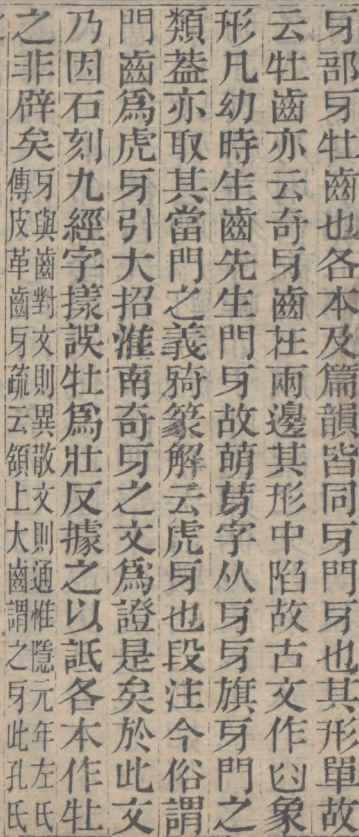 牙部牙牡齒也各本及篇韻皆同牙門牙也其形單故
云牡齒亦云奇牙齒在兩邊其形中陷故古文作𦥒象
形凡幼時生齒先生門牙故萌芽字从牙牙旗牙門之
類葢亦取其當門之義𤘌篆解云虎牙也段注今俗謂
門齒爲虎牙引大招淮南奇牙之文爲證是矣於此文
乃因石刻九經字㨾誤牡爲壯反據之以詆各本作牡
之非辟矣
牙與齒對文則異散文則通惟隱元年左氏
傳皮革齒牙疏云頷上大齒謂之牙此孔氏